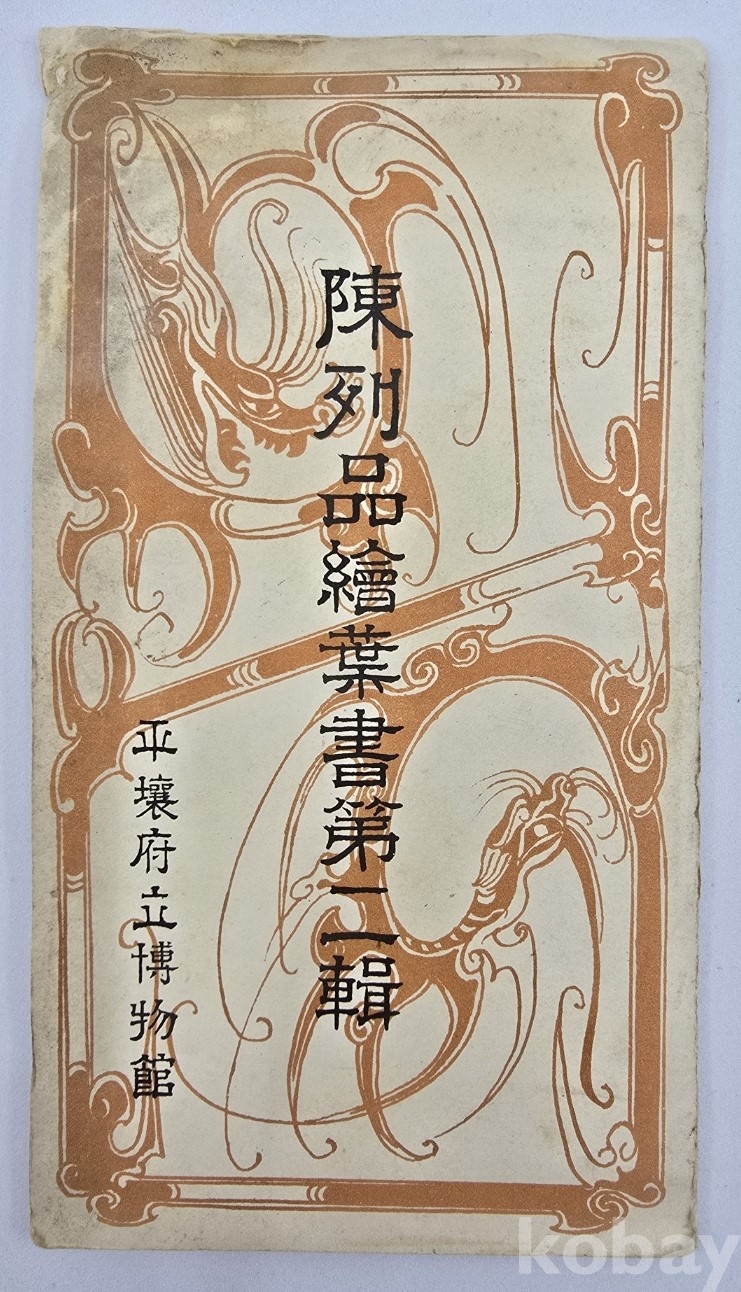 陳列品繪葉書第二輯
平壤府立博物館
kobay